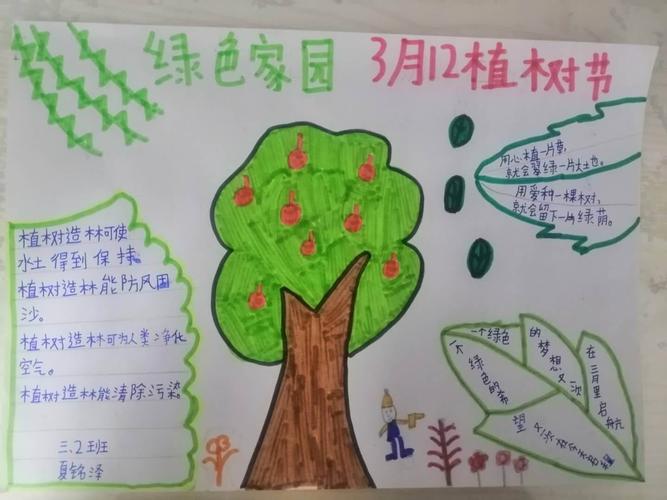 绿色家园
3月12植树节
用心植一片草,
就会翠绿一片大土也。
用爱种一棵树,
就会留下一片绿荫。
植树造林可使
水土得到保持。
植树造林能防风固
沙。
植树造林可为人类净化
空气。
植树造林能清除污染。
三、2班
夏铭泽
一个绿色
的梦想又次
在三月里启航
一个绿色的希
望又